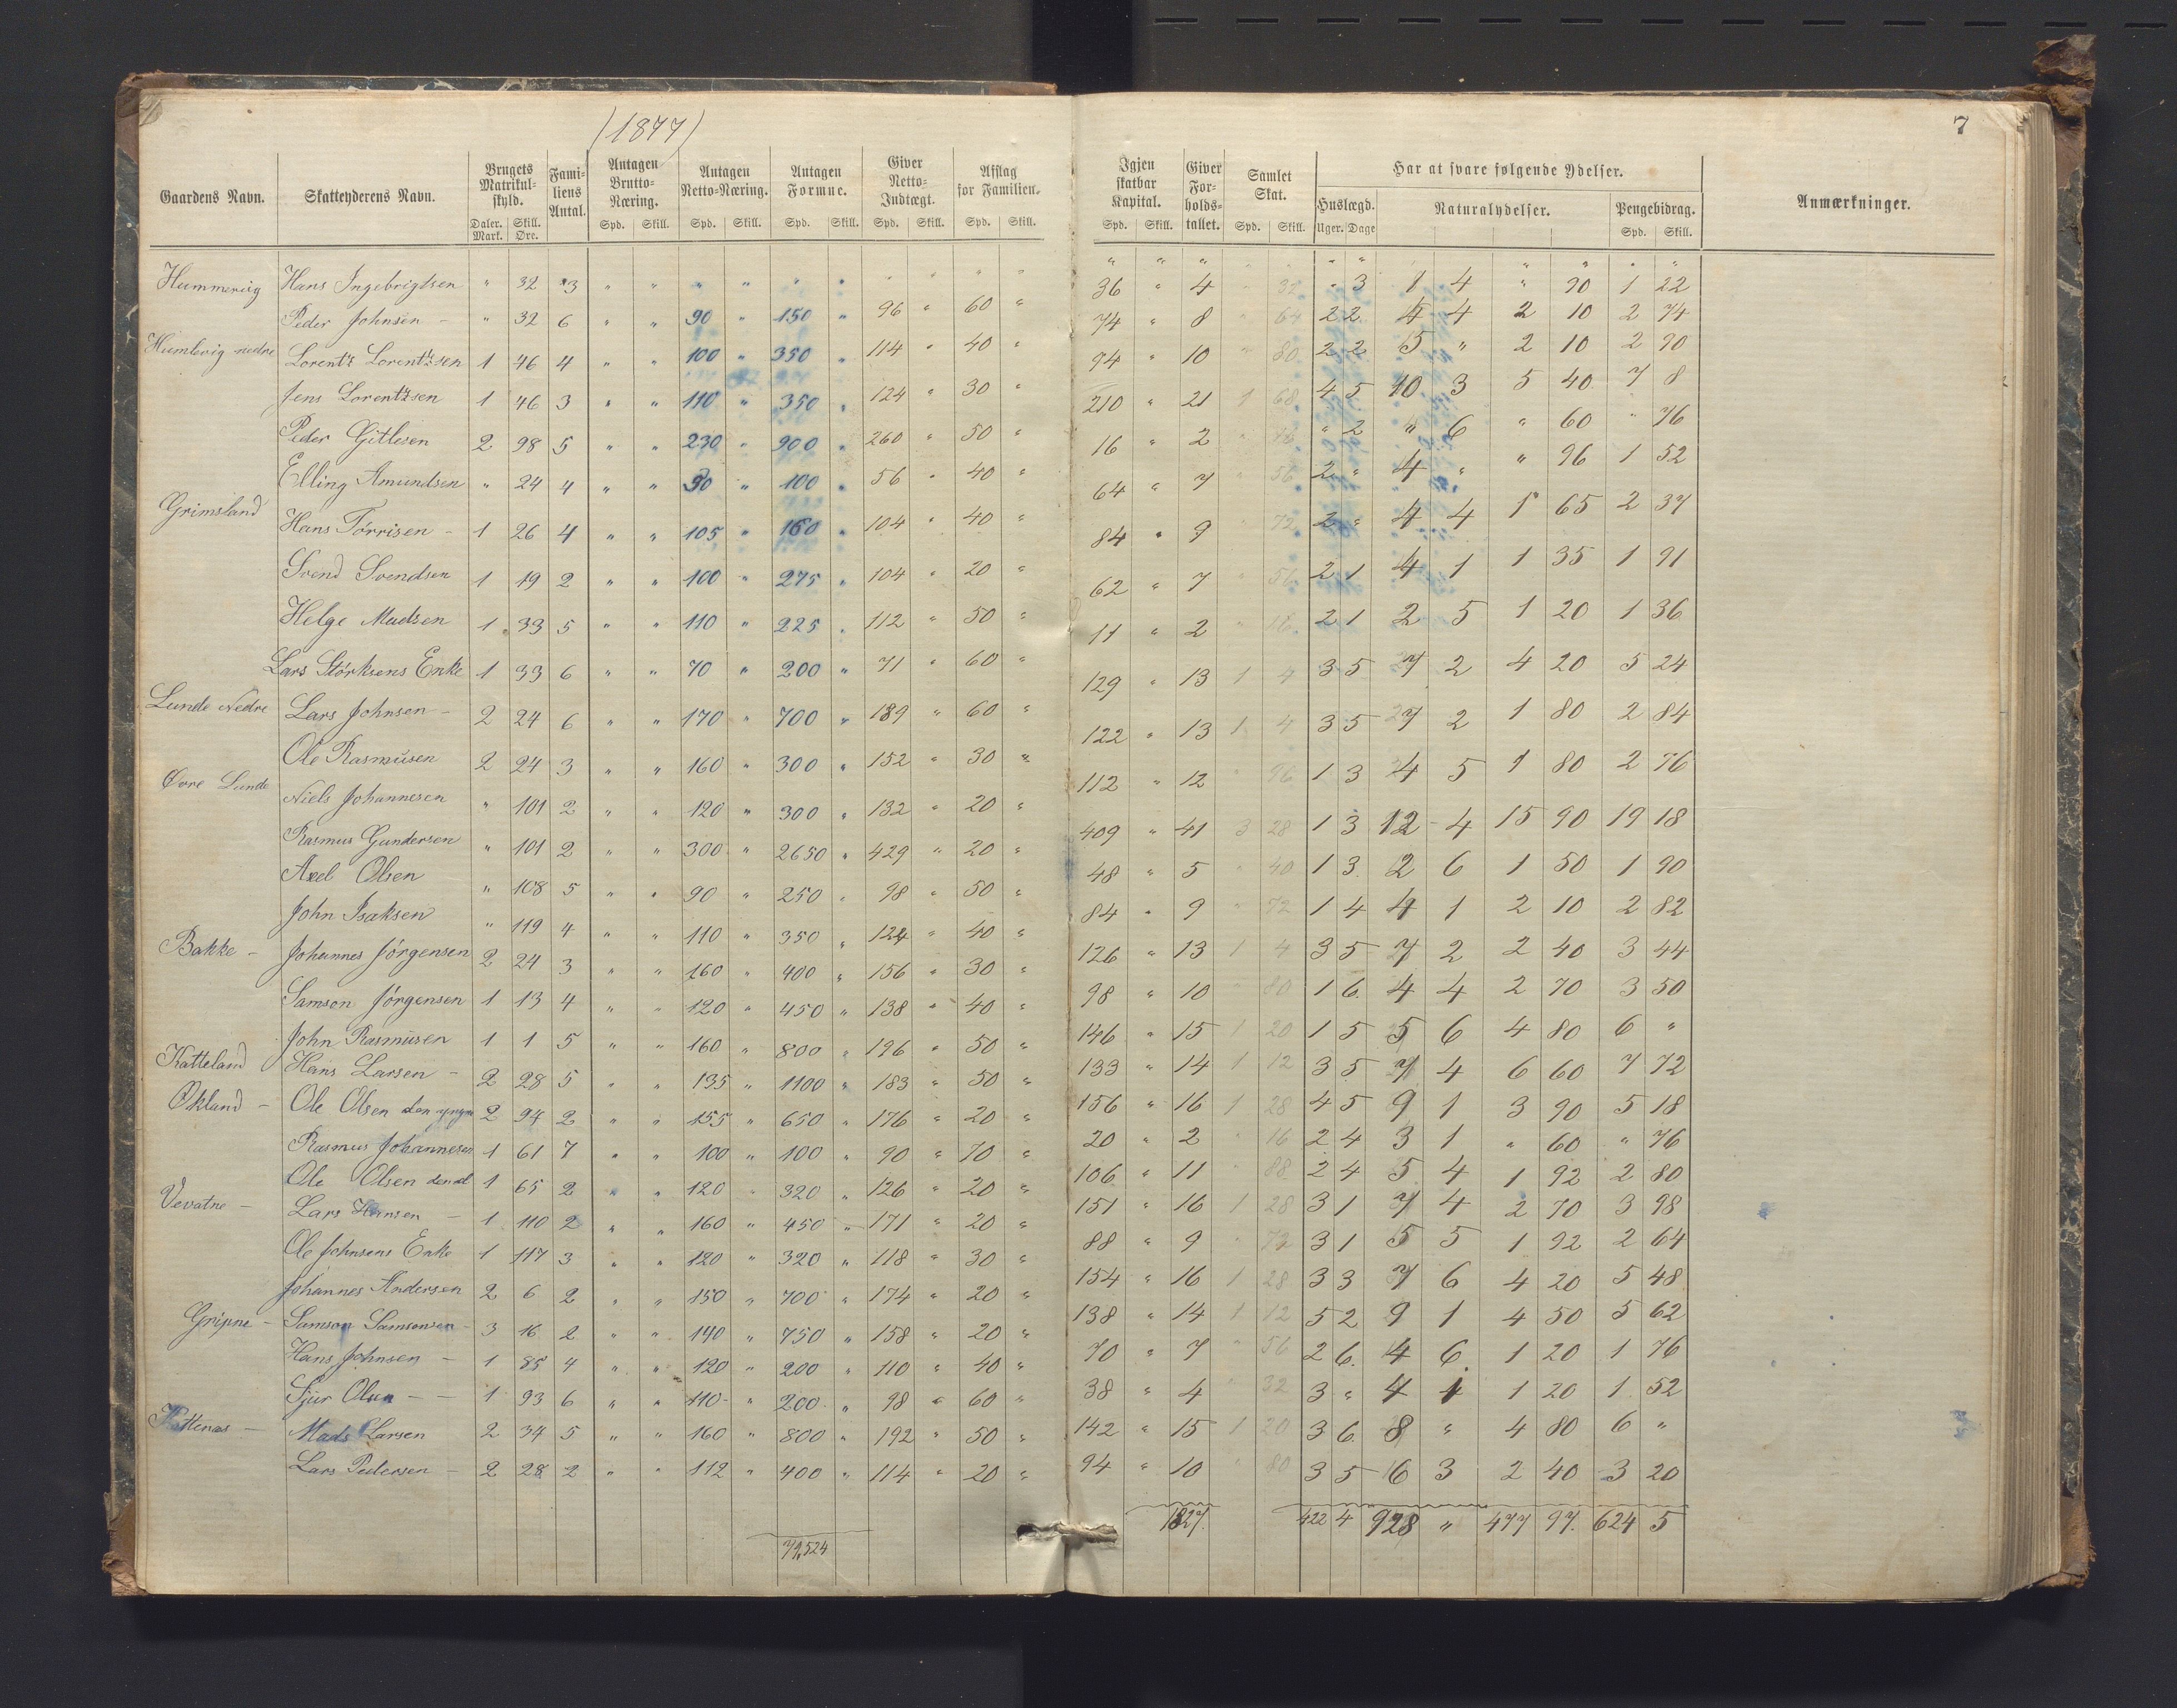 (1877)
7
Gaardens Navn. Skatteyderens Navn. Brugets Matrikul-skyld. Fami-liens Antal. Antagen Brutto-Næring. Antagen Netto-Næring. Antagen Formue. Giver Netto-Indtægt. Afslag for Familien. Igjen skatbar Kapital. Giver For-holds-tallet. Samlet Skat. Har at svare følgende Ydelser. Anmærkninger.
Huslægd. Naturalydelser. Pengebidrag.
Daler. Mark. Skill. Øre. Spd. Skill. Spd. Skill. Spd. Skill. Spd. Skill. Spd. Skill. Spd. Skill. Spd. Skill. Uger. Dage Spd. Skill.
Hummervig Hans Ingebrigtsen " 32 3 " " " " " " " " " " " " " " " " " " " " "
Peder Johnsen – " 32 6 " " 90 " 150 " 96 " 60 " 36 " 4 " 32 " 3 1 4 " 90 1 22
Humlevig nedre Lorentz Lorentzsen 1 46 4 " " 100 " 350 " 114 " 40 " 74 " 8 " 64 2 2 4 4 2 10 2 74
Jens Lorentzsen 1 46 3 " " 110 " 350 " 124 " 30 " 94 " 10 " 80 2 2 5 " 2 10 2 90
Peder Gitlesen 2 98 5 " " 230 " 900 " 260 " 50 " 210 " 21 1 68 4 5 10 3 5 40 7 8
Elling Amundsen " 24 4 " " 50 " 100 " 56 " 40 " 16 " 2 " 16 " 2 " 6 " 60 " 76
Grimsland Hans Tørrisen – 1 26 4 " " 105 " 160 " 104 " 40 " 64 " 7 " 56 2 " 4 " " 96 1 52
Svend Svendsen 1 19 2 " " 100 " 275 " 104 " 20 " 84 " 9 72 2 " 4 4 1 65 2 37
Helge Madsen 1 33 5 " " 110 " 225 " 112 " 50 " 62 " 7 " 56 2 1 4 1 1 35 1 91
Lars Størksens Enke 1 33 6 " " 70 " 200 " 71 " 60 " 11 " 2 " 16 2 1 2 5 1 20 1 36
Lunde Nedre Lars Johnsen – 2 24 6 " " 170 " 700 " 189 " 60 " 129 " 13 1 4 3 5 7 2 4 20 5 24
Ole Rasmusen 2 24 3 " " 160 " 300 " 152 " 30 " 122 " 13 1 4 3 5 7 2 1 80 2 84
Øvre Lunde Niels Johannesen " 101 2 " " 120 " 300 " 132 20 " 112 " 12 " 96 1 3 4 5 1 80 2 76
Rasmus Gundersen " 101 2 " " 300 " 2650 " 429 " 20 " 409 " 41 3 28 1 3 12 4 15 90 19 18
Axel Olsen " 108 5 " " 90 " 250 " 98 " 50 " 48 " 5 " 40 1 3 2 6 1 50 1 90
John Isaksen " 119 4 " " 110 " 350 " 124 " 40 " 84 " 9 " 72 1 4 4 1 2 10 2 82
Bakke – Johannes Jørgensen 2 24 3 " " 160 " 400 " 156 " 30 " 126 " 13 1 4 3 5 7 2 2 40 3 44
Samson Jørgensen 1 13 4 " " 120 " 450 " 138 " 40 " 98 " 10 " 80 1 6 4 4 2 70 3 50
John Rasmusen 1 1 5 " " 160 " 800 " 196 " 50 " 146 " 15 1 20 1 5 5 6 4 80 6 "
Katteland Hans Larsen – 2 28 5 " " 135 " 1100 " 183 " 50 " 133 " 14 1 12 3 5 7 4 6 60 7 72
Økland – Ole Olsen den yngre 2 94 2 " " 155 " 650 " 176 " 20 " 156 " 16 1 28 4 5 9 1 3 90 5 18
Rasmus Johannesen 1 61 7 " " 100 " 100 " 90 " 70 " 20 " 2 " 16 2 4 3 1 " 60 " 76
Ole Olsen den æl 1 65 2 " " 120 " 320 " 126 " 20 " 106 " 11 " 88 2 4 5 4 1 92 2 80
Vevatne – Lars Hansen – 1 110 2 " " 160 " 450 " 171 " 20 " 151 " 16 1 28 3 1 7 4 2 70 3 98
Ole Johnsens Enke 1 117 3 " " 120 " 320 " 118 " 30 " 88 " 9 " 72 3 1 5 5 1 92 2 64
Johannes Andersen 2 6 2 " " 150 " 700 " 174 " 20 " 154 " 16 1 28 3 3 7 6 4 20 5 48
Gripne – Samson Samsonsen 3 16 2 " " 140 " 750 " 158 " 20 " 138 " 14 1 12 5 2 9 1 4 50 5 62
Hans Johnsen – 1 85 4 " " 120 " 200 " 110 " 40 " 70 " 7 " 56 2 6 4 6 1 20 1 76
Sjur Olsen – – 1 93 6 " " 110 " 200 " 98 " 60 " 38 " 4 " 32 3 " 4 1 1 20 1 52
Mads Larsen 2 34 5 " " 160 " 800 " 192 " 50 " 142 " 15 1 20 3 6 8 " 4 80 6 "
Lars Pedersen – 2 28 2 " " 112 " 400 " 114 " 20 " 94 " 10 " 80 3 5 6 3 2 40 3 20
1827. 422 4 928 " 477 97. 624 5